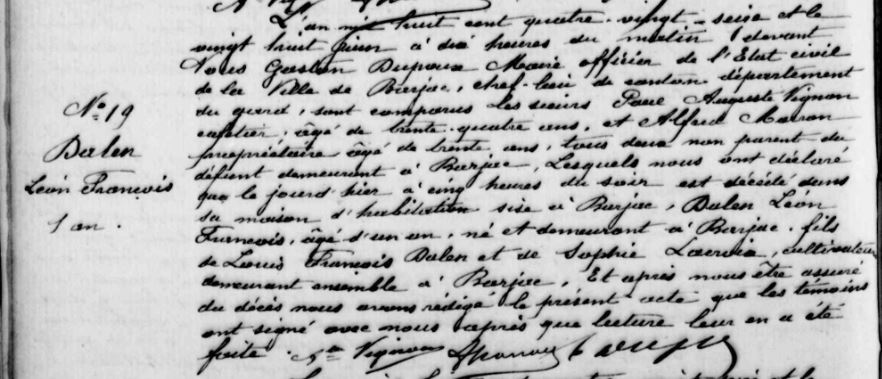 L'an mil huit cent quatre-vingt-seize et le
vingt huit Juin à dix heures du matin devant
Nous Gaston Dupoux Maire officier de l'Etat civil
de la Ville de Barjac, chef-lieu de canton département
du gard, sont comparus les sieurs Paul Auguste Vignon
cafetier, âgé de trente-quatre ans, et Alfred
propriétaire âgé de trente ans, tous deux non parent du
défunt demeurant à Barjac, Lesquels nous ont déclaré
que le jourd'hier à cinq heures du soir est décédé dans
sa maison d'habitation sise à Barjac, Dalen Léon
Francois, âgé d'un an, né et demeurant à Barjac, fils
de Louis François Dalen et de Sophie Lacroix, cultivateurs
demeurant ensemble à Barjac, Et après nous être assuré
du décès nous avons rédigé le présent acte que les témoins
ont signé avec nous après que lecture leur en a été
faite. Vignon
No. 19
Dalen
Léon Francois
1 an.